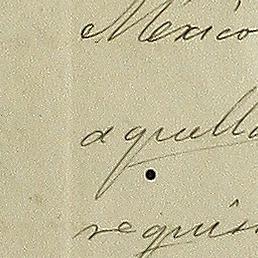 a Mexico
aquella
requis